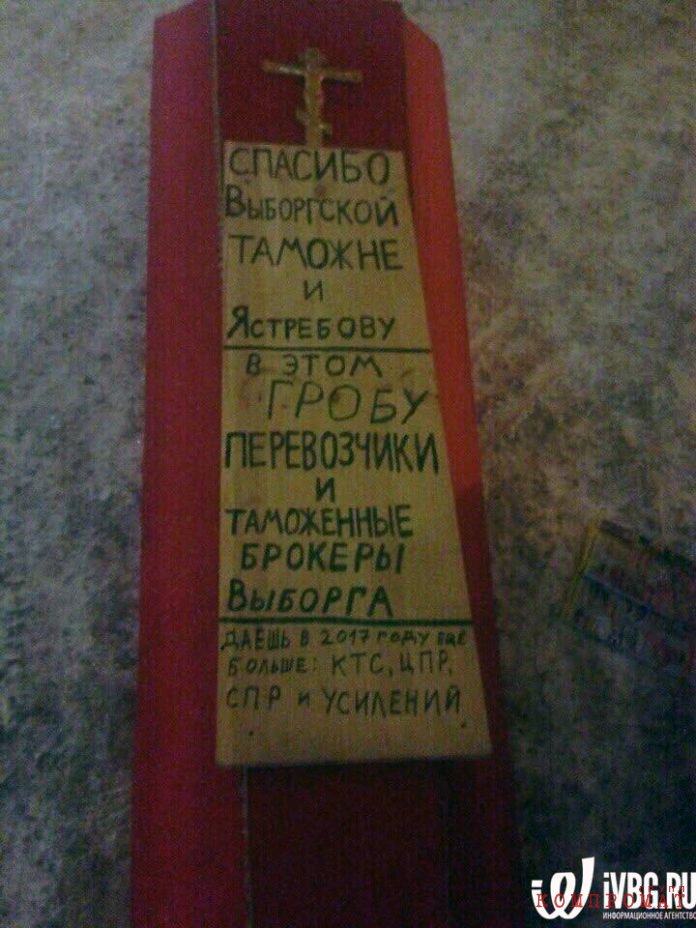 СПАСИБО
ВЫБОРГСКОЙ
ТАМОЖНЕ
И
ЯСТРЕБОВУ
В ЭТОМ
ГРОБУ
ПЕРЕВОЗЧИКИ
И
ТАМОЖЕННЫЕ
БРОКЕРЫ
ВЫБОРГА
ДАЁШЬ В 2017 ГОДУ ЕЩЁ
БОЛЬШЕ: КТС, ЦПР,
СПР И УСИЛЕНИЙ
iVBG.RU
КОМПРОМАТ
ИНФОРМАЦИОННОЕ АГЕНТСТВО